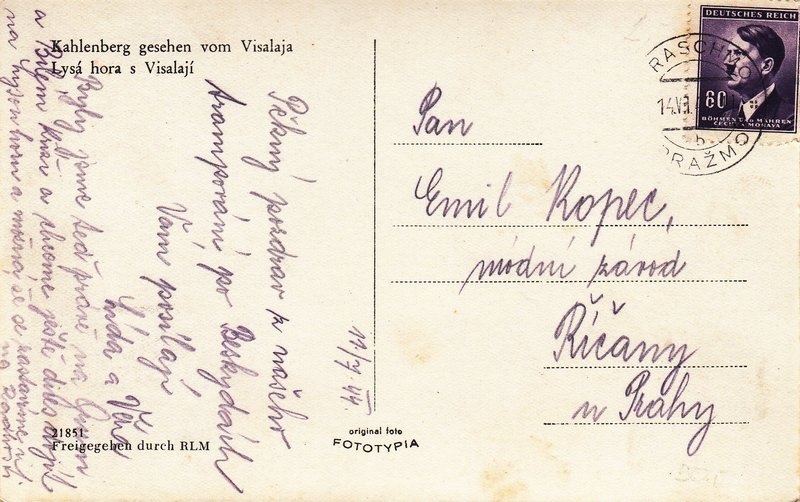 Kahlenberg gesehen vom Visalaja
Lysá hora s Visalají
DEUTSCHES REICH
60
BÖHMEN UND MÄHREN
ČECHY A MORAVA
RASCHMO
14.VII
b
PRAŽMO
Pan
Emil Kopec,
módní závod
Říčany
u Prahy
Pěkný pozdrav z našeho
trampování po Beskydách
Vám posílají
a Věra
11/7.44.
Byly jsme teď právě na
a chceme ještě dnes dojít
na Lysou horu a možná, že se zastavíme i
na
21851
Freigegeben durch RLM
original foto
FOTOTYPIA